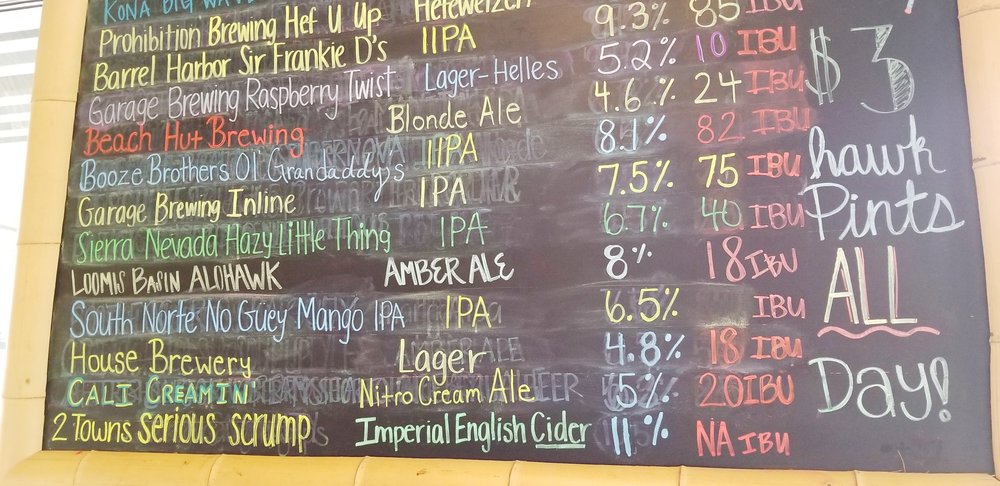 KONA BIG WAVE
Prohibition Brewing Hef U Up Hefeweizen
Barrel Harbor Sir Frankie D's IIPA 9.3% 85 IBU
Garage Brewing Raspberry Twist Lager-Helles 5.2% 10 IBU
Beach Hut Brewing Blonde Ale 4.6% 24 IBU
Booze Brothers Ol' Grandaddy's IIPA 8.1% 82 IBU
Garage Brewing Inline IPA 7.5% 75 IBU
Sierra Nevada Hazy Little Thing IPA 6.7% 40 IBU
LOOMIS BASIN ALOHAWK AMBER ALE 8% 18 IBU
South Norte No Guey Mango IPA IPA 6.5% IBU
House Brewery Lager 4.8% 18 IBU
CALI CREAMIN' Nitro Cream Ale 5% 20 IBU
2 Towns Serious scrump Imperial English Cider 11% NA IBU
$3
hawk
Pints
ALL
Day!